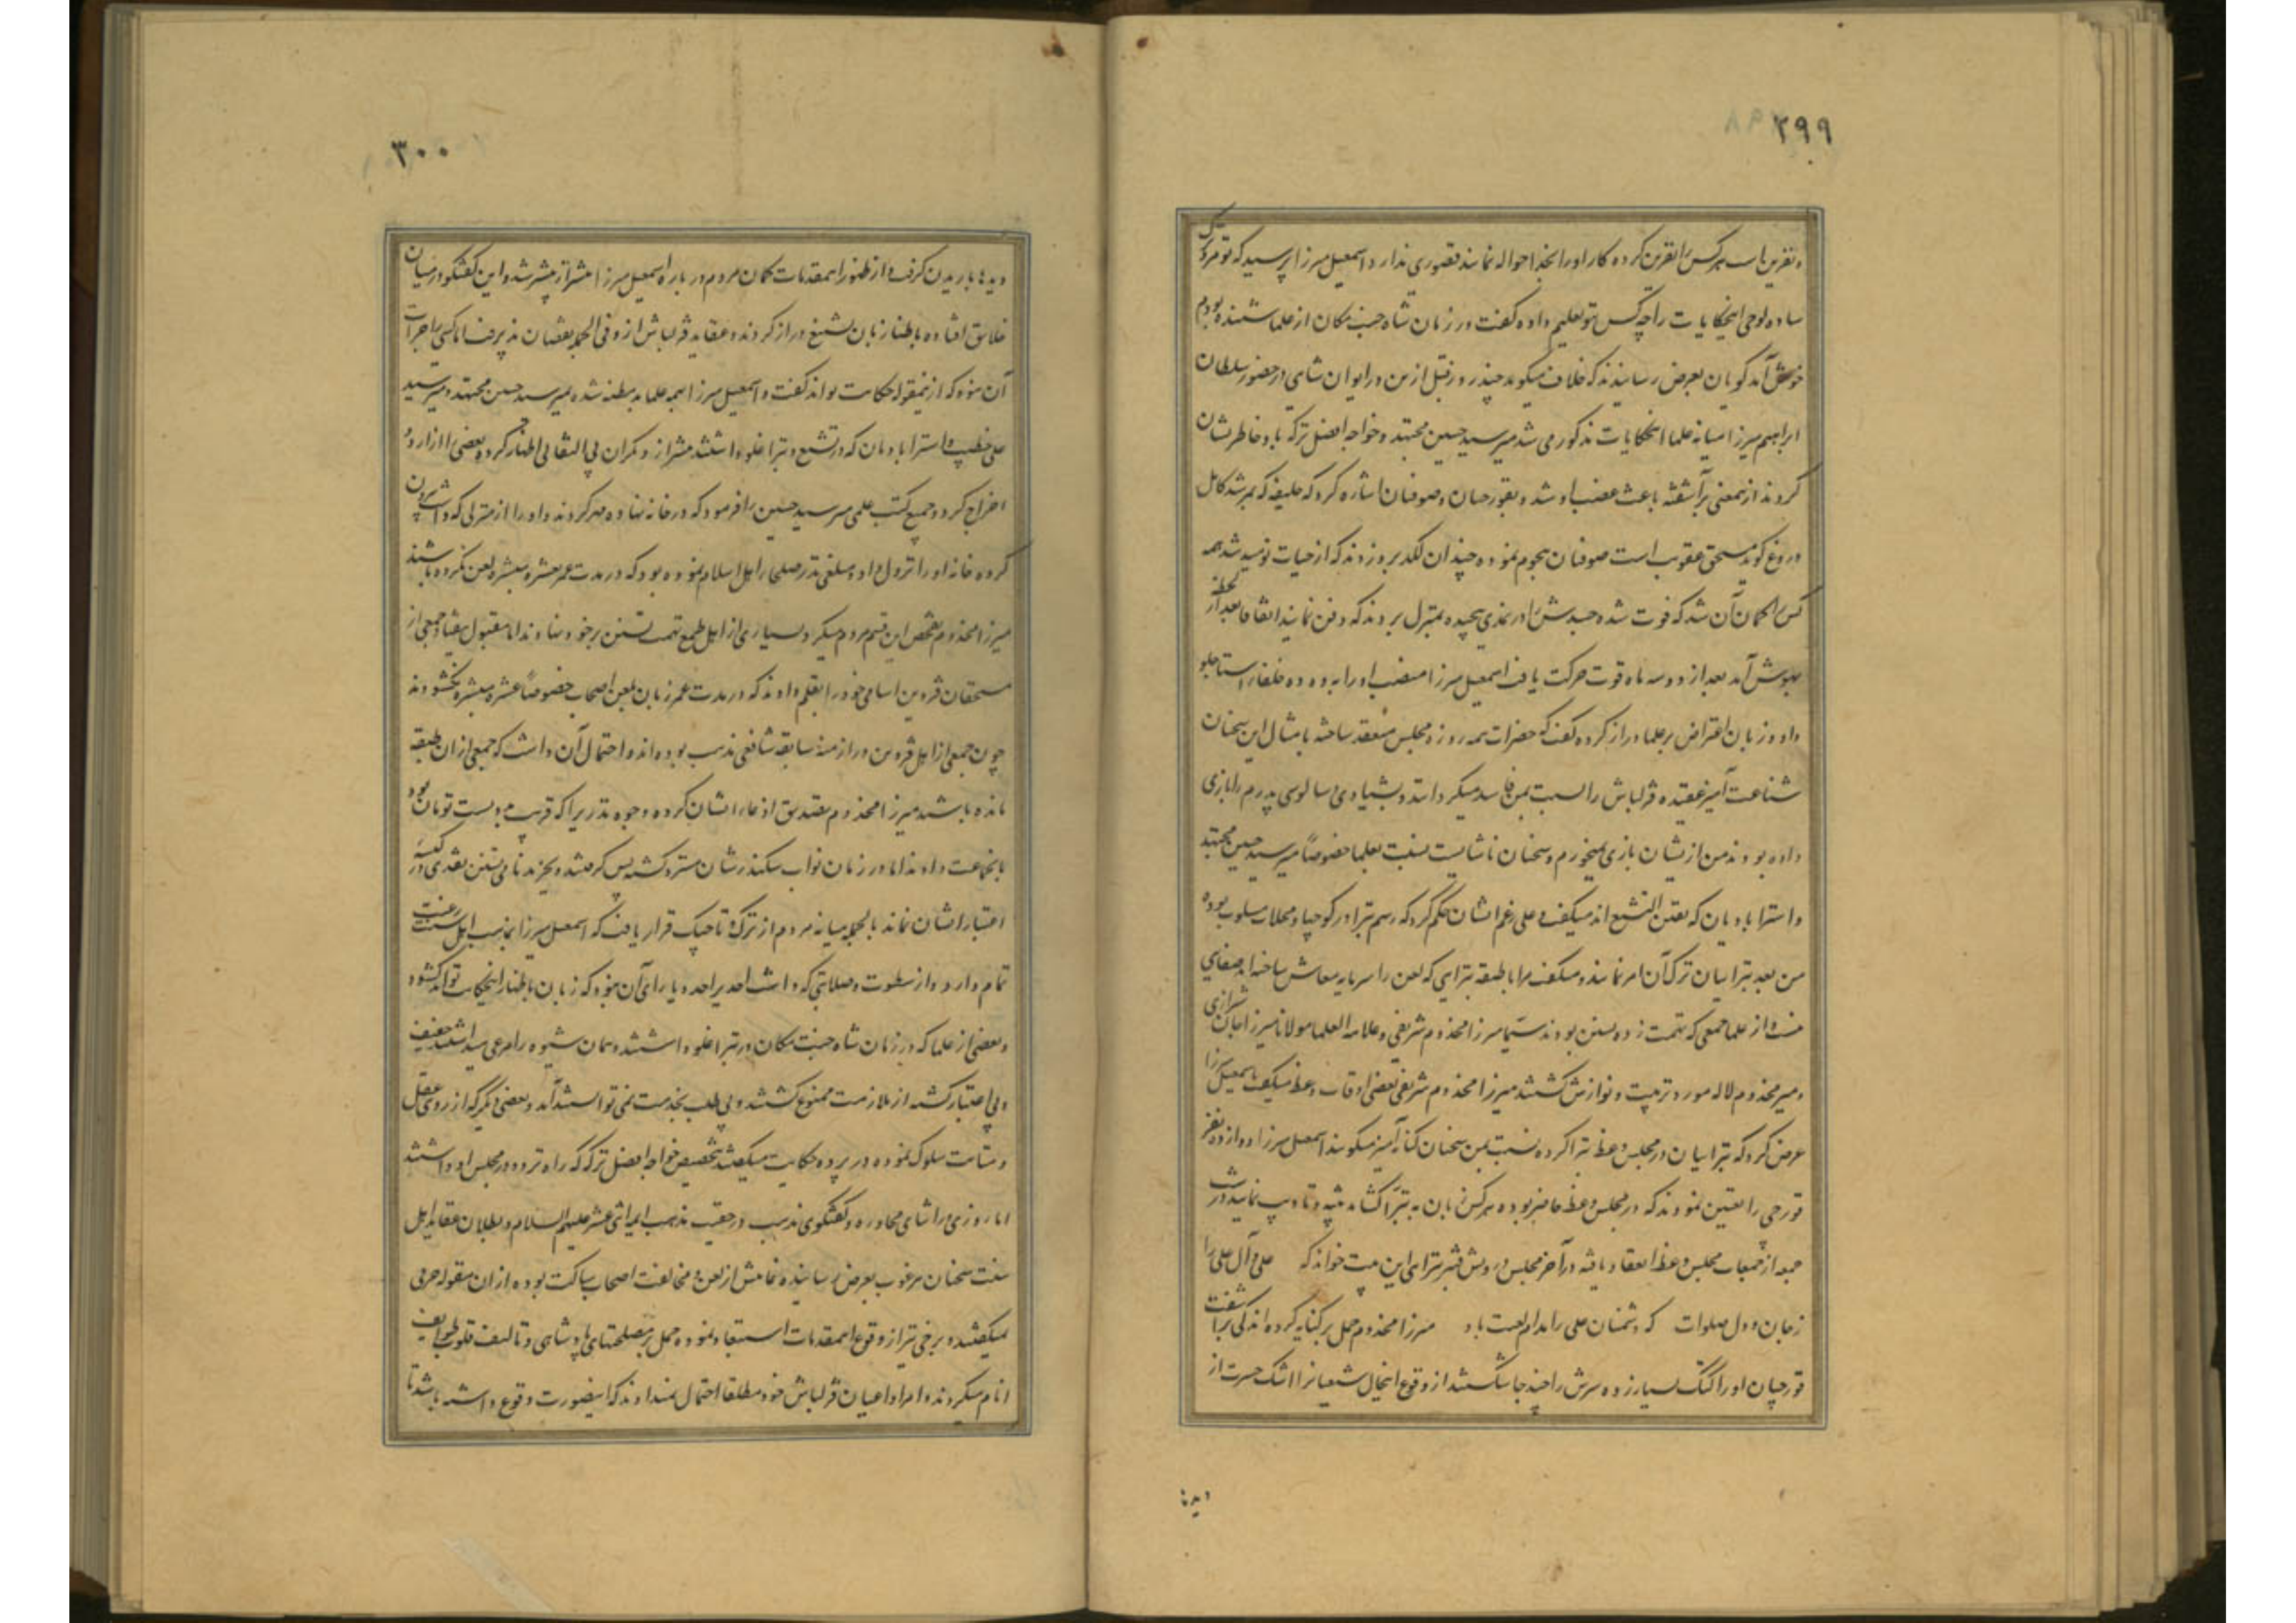 ۲۹۹
و نفرین است هرکس را نفرین کرده کار او را بخدا حواله نمایند قصوری ندارد اسمعیل میرزا پرسید که تو مرد ترک
ساده لوحی اینحکایات را چه کس بتو تعلیم داده گفت در زمان شاه جنت مکان از علما شنیده بودم
خوش آمد گویان بعرض رسانیدند که خلاف میگوید چند روز قبل ازین در ایوان شاهی در حضور سلطان
ابراهیم میرزا میانه علما اینحکایات مذکور می شد میر سید حسین مجتهد و خواجه افضل ترکه یاد خاطرنشان
کردند ازین معنی برآشفته باعث غضب او شد و بقورچیان و صوفیان اشاره کرد که خلیفه که بمرشد کامل
دروغ گوید مستحق عقوبت است صوفیان هجوم نموده چندان لگد برو زدند که از حیات نومید شد همه
کس را گمان آن شد که فوت شده جسدش را در نمدی پیچیده بمنزل بردند که دفن نمایند اتفاقا بعد از لحظه
بهوش آمد بعد از دو سه ماه قوت حرکت یافت اسمعیل میرزا منصب او را به دده خلفاء استاجلو
داد و زبان اعتراض بر علما دراز کرده گفت که حضرات همه روزه مجلس منعقد ساخته بامثال این سخنان
شناعت آمیز عقیده قزلباش را نسبت بمن فاسد میگردانند و بشیادی و سالوسی پدرم را بازی
داده بودند من ازیشان بازی نمیخورم و سخنان ناشایست نسبت بعلما خصوصاً میر سید حسین مجتهد
و استرابادیان که یقین التشیع اند میگفت و علی رغم ایشان حکم کرد که رسم تبرا در کوچها و محلات مسلوب بوده
من بعد تبرائیان ترک آن امر نمایند و میگفت مرا با طبقه تبرایی که لعن را سرمایه معاش ساخته اند صفایی
نیست و از علما جمعی که تهمت زده تسنن بودند سیما میرزا مخدوم شریفی و علامه العلما مولانا میرزا جان شیرازی
و میر مخدوم لاله مورد تربیت و نوازش گشتند میرزا مخدوم شریفی بعضی اوقات وعظ میگفت باسمعیل میرزا
عرض کرد که تبرائیان در مجلس وعظ تبرا کرده نسبت بمن سخنان کنایه آمیز میگویند اسمعیل میرزا دوازده نفر
قورچی را تعیین نمودند که در مجلس وعظ حاضر بوده هرکس زبان به تبرا گشاید تنبیه و تادیب نمایند در شب
جمعه از جمعات مجلس وعظ انعقاد یافته در آخر مجلس درویش قنبر تبرایی این بیت خواند که علی و آل علی را
ز جان و دل صلوات که دشمنان علی را مدام لعنت باد میرزا مخدوم حمل بر کنایه کرده اندکی برآشفت
قورچیان او را کتک بسیار زده سرش را چند جا شکستند از وقوع اینحال شیعیان را اشک حسرت از
دیدها
۳۰۰
دیدها باریدن گرفت و از ظهور این مقدمات گمان مردم در باره اسمعیل میرزا بیشتر از پیشتر شد و این گفتگو در میان
خلایق افتاده باطنا زبان تشنیع دراز کردند و عقاید قزلباش ازو فی الجمله نقصان پذیرفت اما کسی را جرأت
آن نبود که ازین مقوله حکایت تواند گفت و اسمعیل میرزا بهمه علما بد مظنه شده بمیر سید حسین مجتهد و میر سید
علی خطیب و استرابادیان که در تشیع و تبرا غلو داشتند بیشتر از دیگران بی التفاتی اظهار کرده بعضی را از اردو
اخراج کرد و جمیع کتب علمی میر سید حسین را فرمود که در خانه نهاده مهر کردند و او را از منزلی که داشت بیرون
کرده خانه او را نزول داد و مبلغی نذر صلحاء اهل اسلام نموده بود که در مدت عمر عشره مبشره لعن نکرده باشند
میرزا مخدوم تفحص این قسم مردم میکرد بسیاری از اهل طمع تهمت تسنن بر خود نهادند اما مقبول نیفتاد جمعی از
مستحقان قزوین اسامی خود را بقلم دادند که در مدت عمر زبان بلعن اصحاب خصوصاً عشره مبشره نگشودند
چون جمعی از اهل قزوین در ازمنه سابقه شافعی مذهب بوده اند و احتمال آن داشت که جمعی ازان طبقه
مانده باشند میرزا مخدوم تصدیق ادعاء ایشان کرده وجوه نذر را که قریب به دویست تومان بود
بانجماعت دادند اما در زمان نواب سکندرشان مسترد گشته پس گرفتند و بجز بدنامی تسنن نقدی در کیسه
اعتبار ایشان نماند بالجمله میانه مردم از ترک و تاجیک قرار یافت که اسمعیل میرزا بمذهب اهل سنت رغبت
تمام دارد و از سطوت و صلابتی که داشت احدی را حد و یارای آن نبود که زبان باظهار اینحکایت تواند گشود
و بعضی از علما که در زمان شاه جنت مکان در تبرا غلو داشتند و همان شیوه را مرعی میداشتند خفیف
و بی اعتبار گشته از ملازمت ممنوع گشتند و بی طلب بخدمت نمی توانستند آمد و بعضی دیگر که از روی عقل
و متانت سلوک نموده در پرده حکایت میگفتند بتخصیص خواجه افضل ترکه که راه تردد در مجلس او داشتند
اما روزی در اثنای محاوره و گفتگوی مذهب در حقیت مذهب ائمه اثنی عشر علیهم السلام و بطلان عقاید اهل
سنت سخنان مرغوب بعرض رسانیده نهایتش از لعن و مخالفت اصحاب ساکت بوده ازان مقوله حرفی
نمیگفتند و برخی نیز از وقوع این مقدمات استبعاد نموده حمل بر مصلحتهای پادشاهی و تالیف قلوب طوایف
انام میکردند و امرا و اعیان قزلباش خود مطلقا احتمال نمیدادند که اینصورت وقوع داشته باشد تا